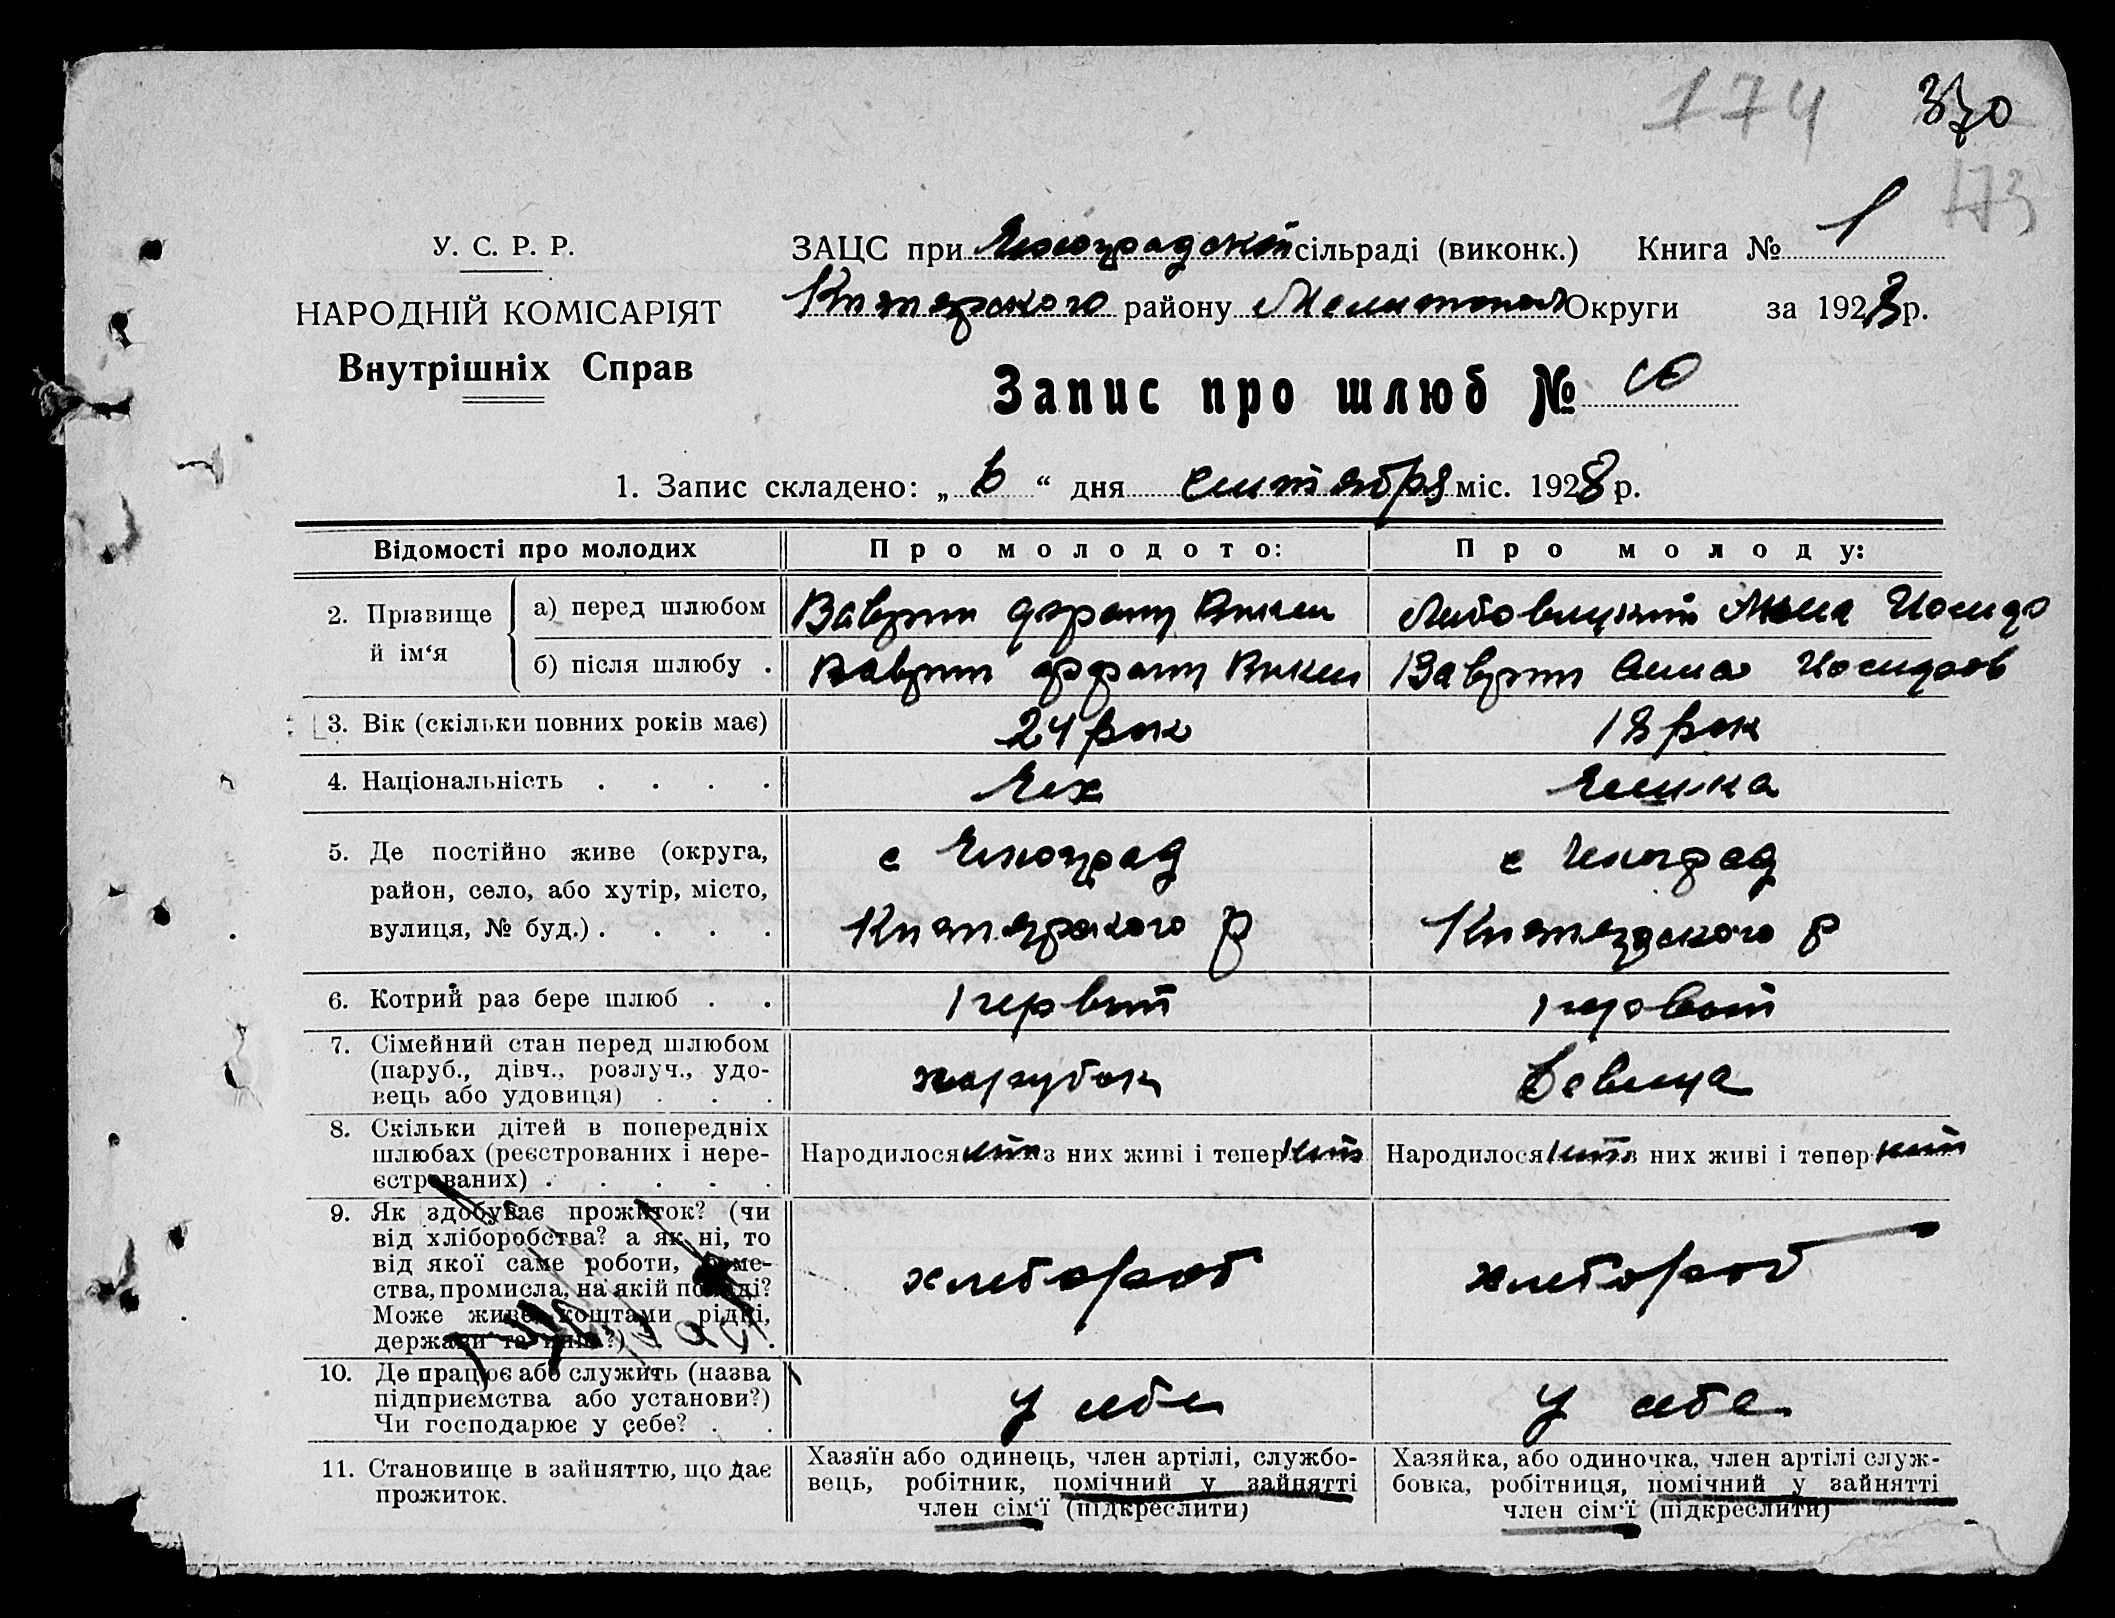 174 370
173
У. С. Р. Р.
НАРОДНІЙ КОМІСАРІЯТ
Внутрішніх Справ
ЗАЦС при Чехоградской сільраді (виконк.) Книга № 1
району Мелитопол Округи за 1928 р.
Запис про шлюб № 10
1. Запис складено: „ 6 “ дня сентября міс. 1928 р.
Відомості про молодих Про молодого: Про молоду:
2. Прізвище й ім‘я
а) перед шлюбом Ваврин франц
б) після шлюбу . Ваврин франц Ваврин Анна
3. Вік (скільки повних років має) 24 рок 18 рок
4. Національність . . . . Чех Чешка
5. Де постійно живе (округа, с Чехоград с Чехоград
район, село, або хутір, місто,
вулиця, № буд.) . . . . р р
6. Котрий раз бере шлюб . . первий первий
7. Сімейний стан перед шлюбом
(паруб., дівч., розлуч., удо- парубок девица
вець або удовиця) . . .
8. Скільки дітей в попередніх
шлюбах (реєстрованих і нере- Народилося нит з них живі і тепер нит Народилося нит з них живі і тепер нит
єстрованих) . . . . .
9. Як здобуває прожиток? (чи
від хліборобства? а як ні, то
від якої саме роботи, реме- хлебороб хлебороб
ства, промисла, на якій посаді?
Може живе коштами рідні,
держави та инш.?) .
10. Де працює або служить (назва
підприємства або установи?) у себе у себе
Чи господарює у себе? . .
11. Становище в зайняттю, що дає
прожиток.
Хазяїн або одинець, член артілі, службо-
вець, робітник, помічний у зайнятті
член сім‘ї (підкреслити)
Хазяйка, або одиночка, член артілі служ-
бовка, робітниця, помічний у зайнятті
член сім‘ї (підкреслити)